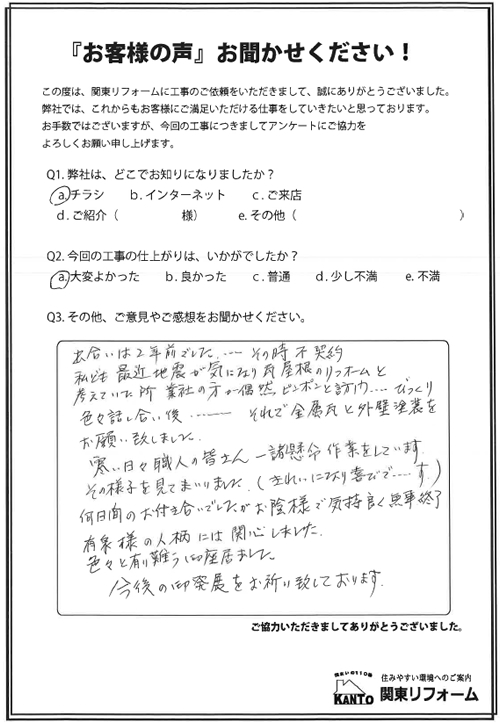 『お客様の声』お聞かせください！
この度は、関東リフォームに工事のご依頼をいただきまして、誠にありがとうございました。
弊社では、これからもお客様にご満足いただける仕事をしていきたいと思っております。
お手数ではございますが、今回の工事につきましてアンケートにご協力を
よろしくお願い申し上げます。
Q1. 弊社は、どこでお知りになりましたか？
a.チラシ b. インターネット c. ご来店
d. ご紹介（ 様） e. その他（ ）
Q2. 今回の工事の仕上がりは、いかがでしたか？
a.大変よかった b. 良かった c. 普通 d. 少し不満 e. 不満
Q3. その他、ご意見やご感想をお聞かせください。
出合いは2年前でした.…… その時 不契約
私ども 最近 地震が気になり瓦屋根のリフォームと
考えていた所 業社の方が偶然 ピンポンと訪れ…. びっくり
色々話し合い後 ……… それで金属瓦と外壁塗装を
お願い致しました.
寒い日々職人の皆さん 一諸懸命 作業をしています.
その様子を見てまいりました.(きれいになり喜びで…..す.)
何日間のお付き合いでしたがお陰様で気持良く無事終了
有泉様の人柄には関心しました.
色々と有り難う御座居ました.
今後の御発展をお祈り致しております.
ご協力いただきましてありがとうございました。
住まいの110番
KANTO
住みやすい環境へのご案内
関東リフォーム